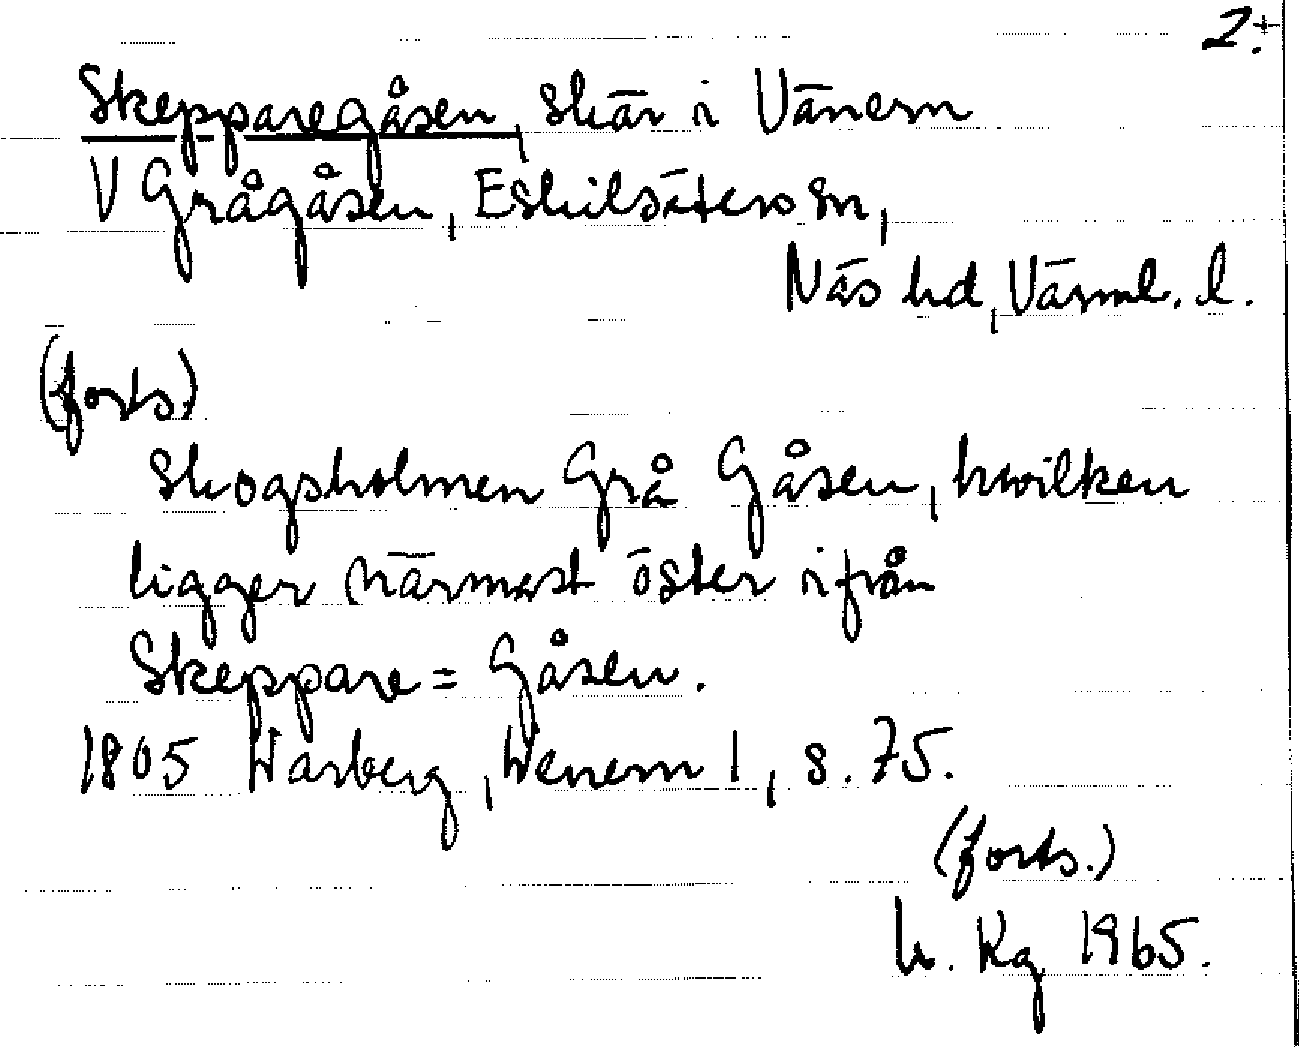 2.+
Skepparegåsen, skär i Vänern
V Grågåsen, Eskilsäters sn,
Näs hd, Värml. l.
(forts.)
Skogsholmen Grå Gåsen, hwilken
ligger närmast öster ifrån
Skeppare=Gåsen.
1805 Warberg, Wenern 1, s. 75.
(forts.)
h. Kg 1965.